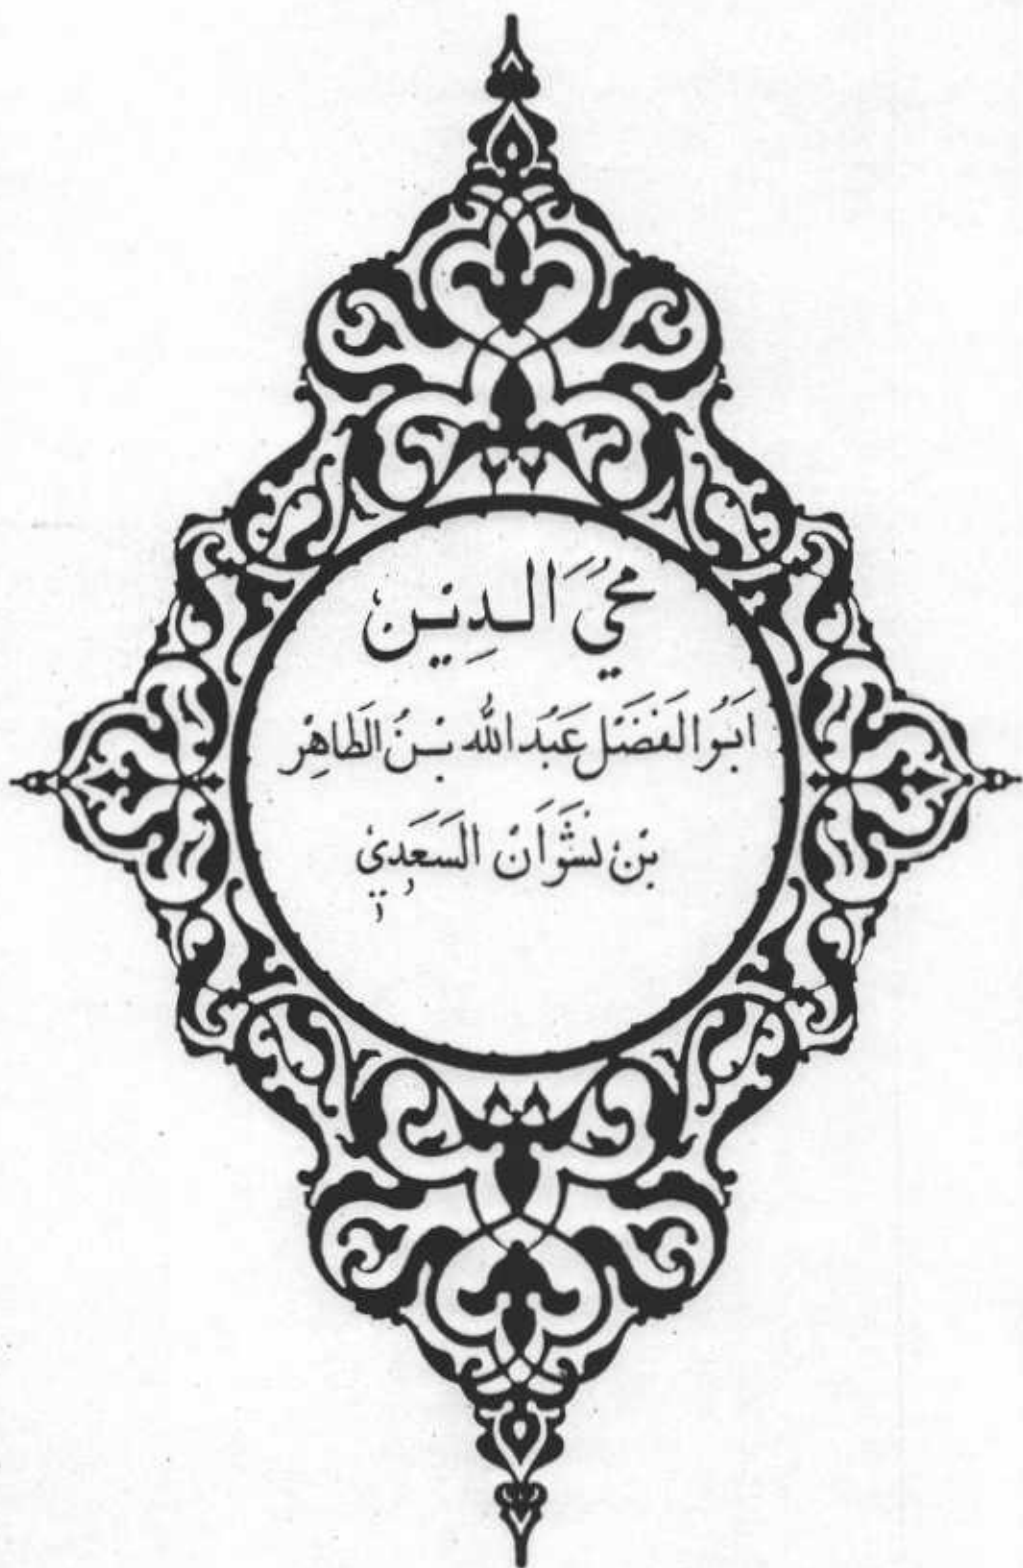 محيُ الدِين
ابُو الفضل عَبْد الله بْنُ الطاهِرْ
بْن نَشْوَانْ السَعَدِي